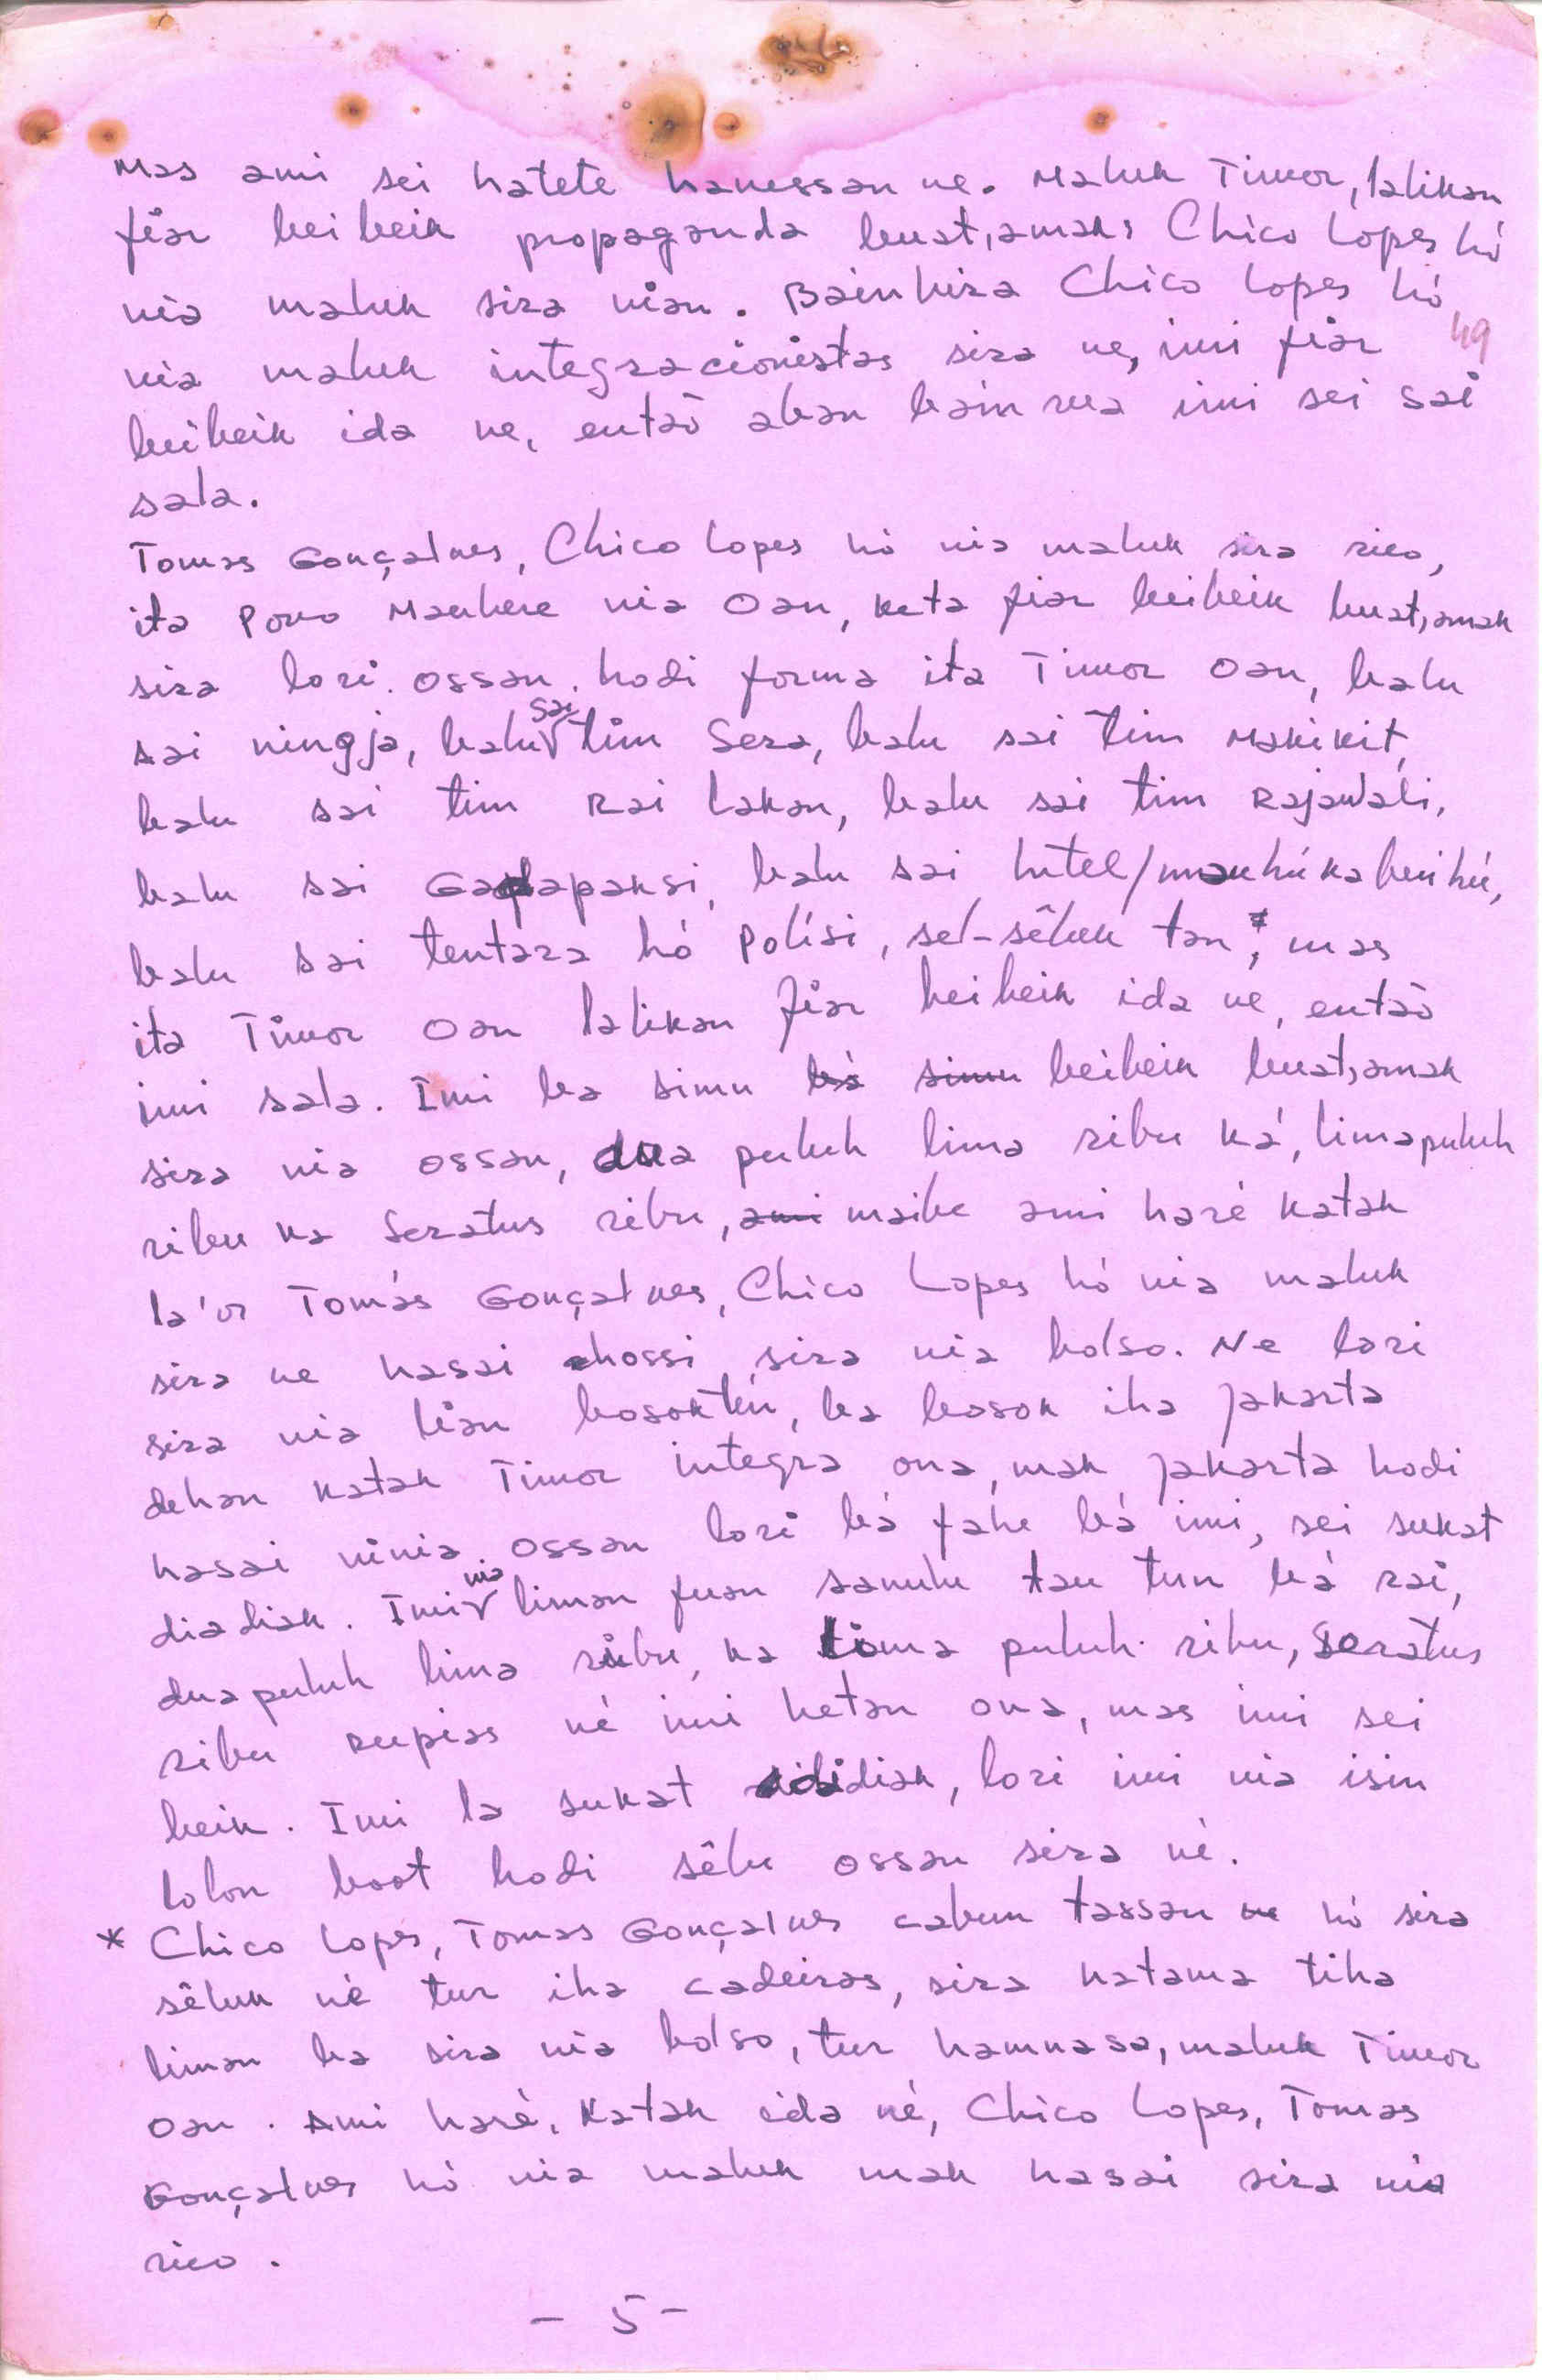 Mas ami sei hatete hanessan ne. Maluk Timor, lalikan
fiar beibeik propaganda buat, amaks Chico Lopes hó
nia maluk sira nian. Bainhira Chico Lopes hó
49
nia maluk integracionistas sira ne, imi fiar
beibeik ida ne, entaõ aban bain rua imi sei sai
sala.
Tomas Gonçalves, Chico Lopes hó nia maluk sira rico,
ita Povo Maubere nia Oan, keta fiar beibeik buat, amak
sira lori ossan hodi forma ita Timor Oan, balu
sai ningja, balu sai tim Sera, balu sai tim Makikit,
balu sai tim Rai Lakan, balu sai tim Rajawali,
balu sai Gadapaksi, balu sai Intel/mauhú ka beihú,
balu sai tentara hó Polísi, sel-sêluk tan, mas
ita Timor Oan lalikan fiar beibeik ida ne, entaõ
imi sala. Imi ba simu bá simu beibeik buat, amak
sira nia ossan, dua puluh lima ribu ká, lima puluh
ribu ka Seratus ribu, ami maibe ami haré katak
la'os Tomás Gonçalves, Chico Lopes hó nia maluk
sira ne hasai hossi sira nia bolso. Ne lori
sira nia lian bosokten, ba bosok iha Jakarta
dehan katak Timor integra ona, mak Jakarta hodi
hasai ninia ossan lori bá fahe bá imi, sei sukat
diadiak. Imi nia liman fuan sanulu tau tun bá rai,
duapuluh lima ribu, ka lima puluh ribu, Seratus
ribu rupias né imi hetan ona, mas imi sei
beik. Imi la sukat didiak, lori imi nia isin
lolon boot hodi sêlu ossan sira né.
* Chico Lopes, Tomas Gonçalves cabun tassan ne hó sira
sêluk né tur iha cadeiras, sira hatama tiha
liman ba sira nia bolso, tur hamnasa, maluk Timor
Oan. Ami haré, katak ida né, Chico Lopes, Tomas
Gonçalves hó nia maluk mak hasai sira nia
rico.
- 5 -